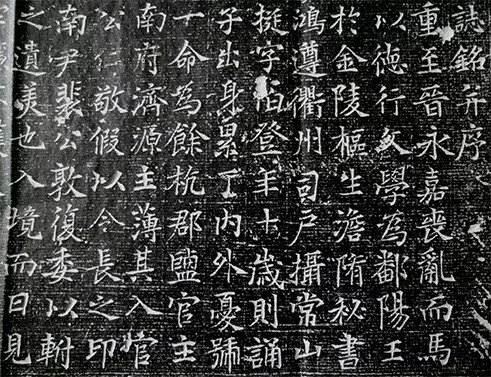 誌銘并序
重至晉永嘉喪亂而馬
以德行文學為鄱陽王
於金陵樞生澹隋秘書
鴻遵衢州司戶攝常山
挺字伯登年十歲則誦
子出身累丁內外憂號
一命為餘杭郡鹽官主
南府濟源主薄其入官
公仁敬假以令長之印
南尹裴公敦復委以軵
之遺美也入境而日見